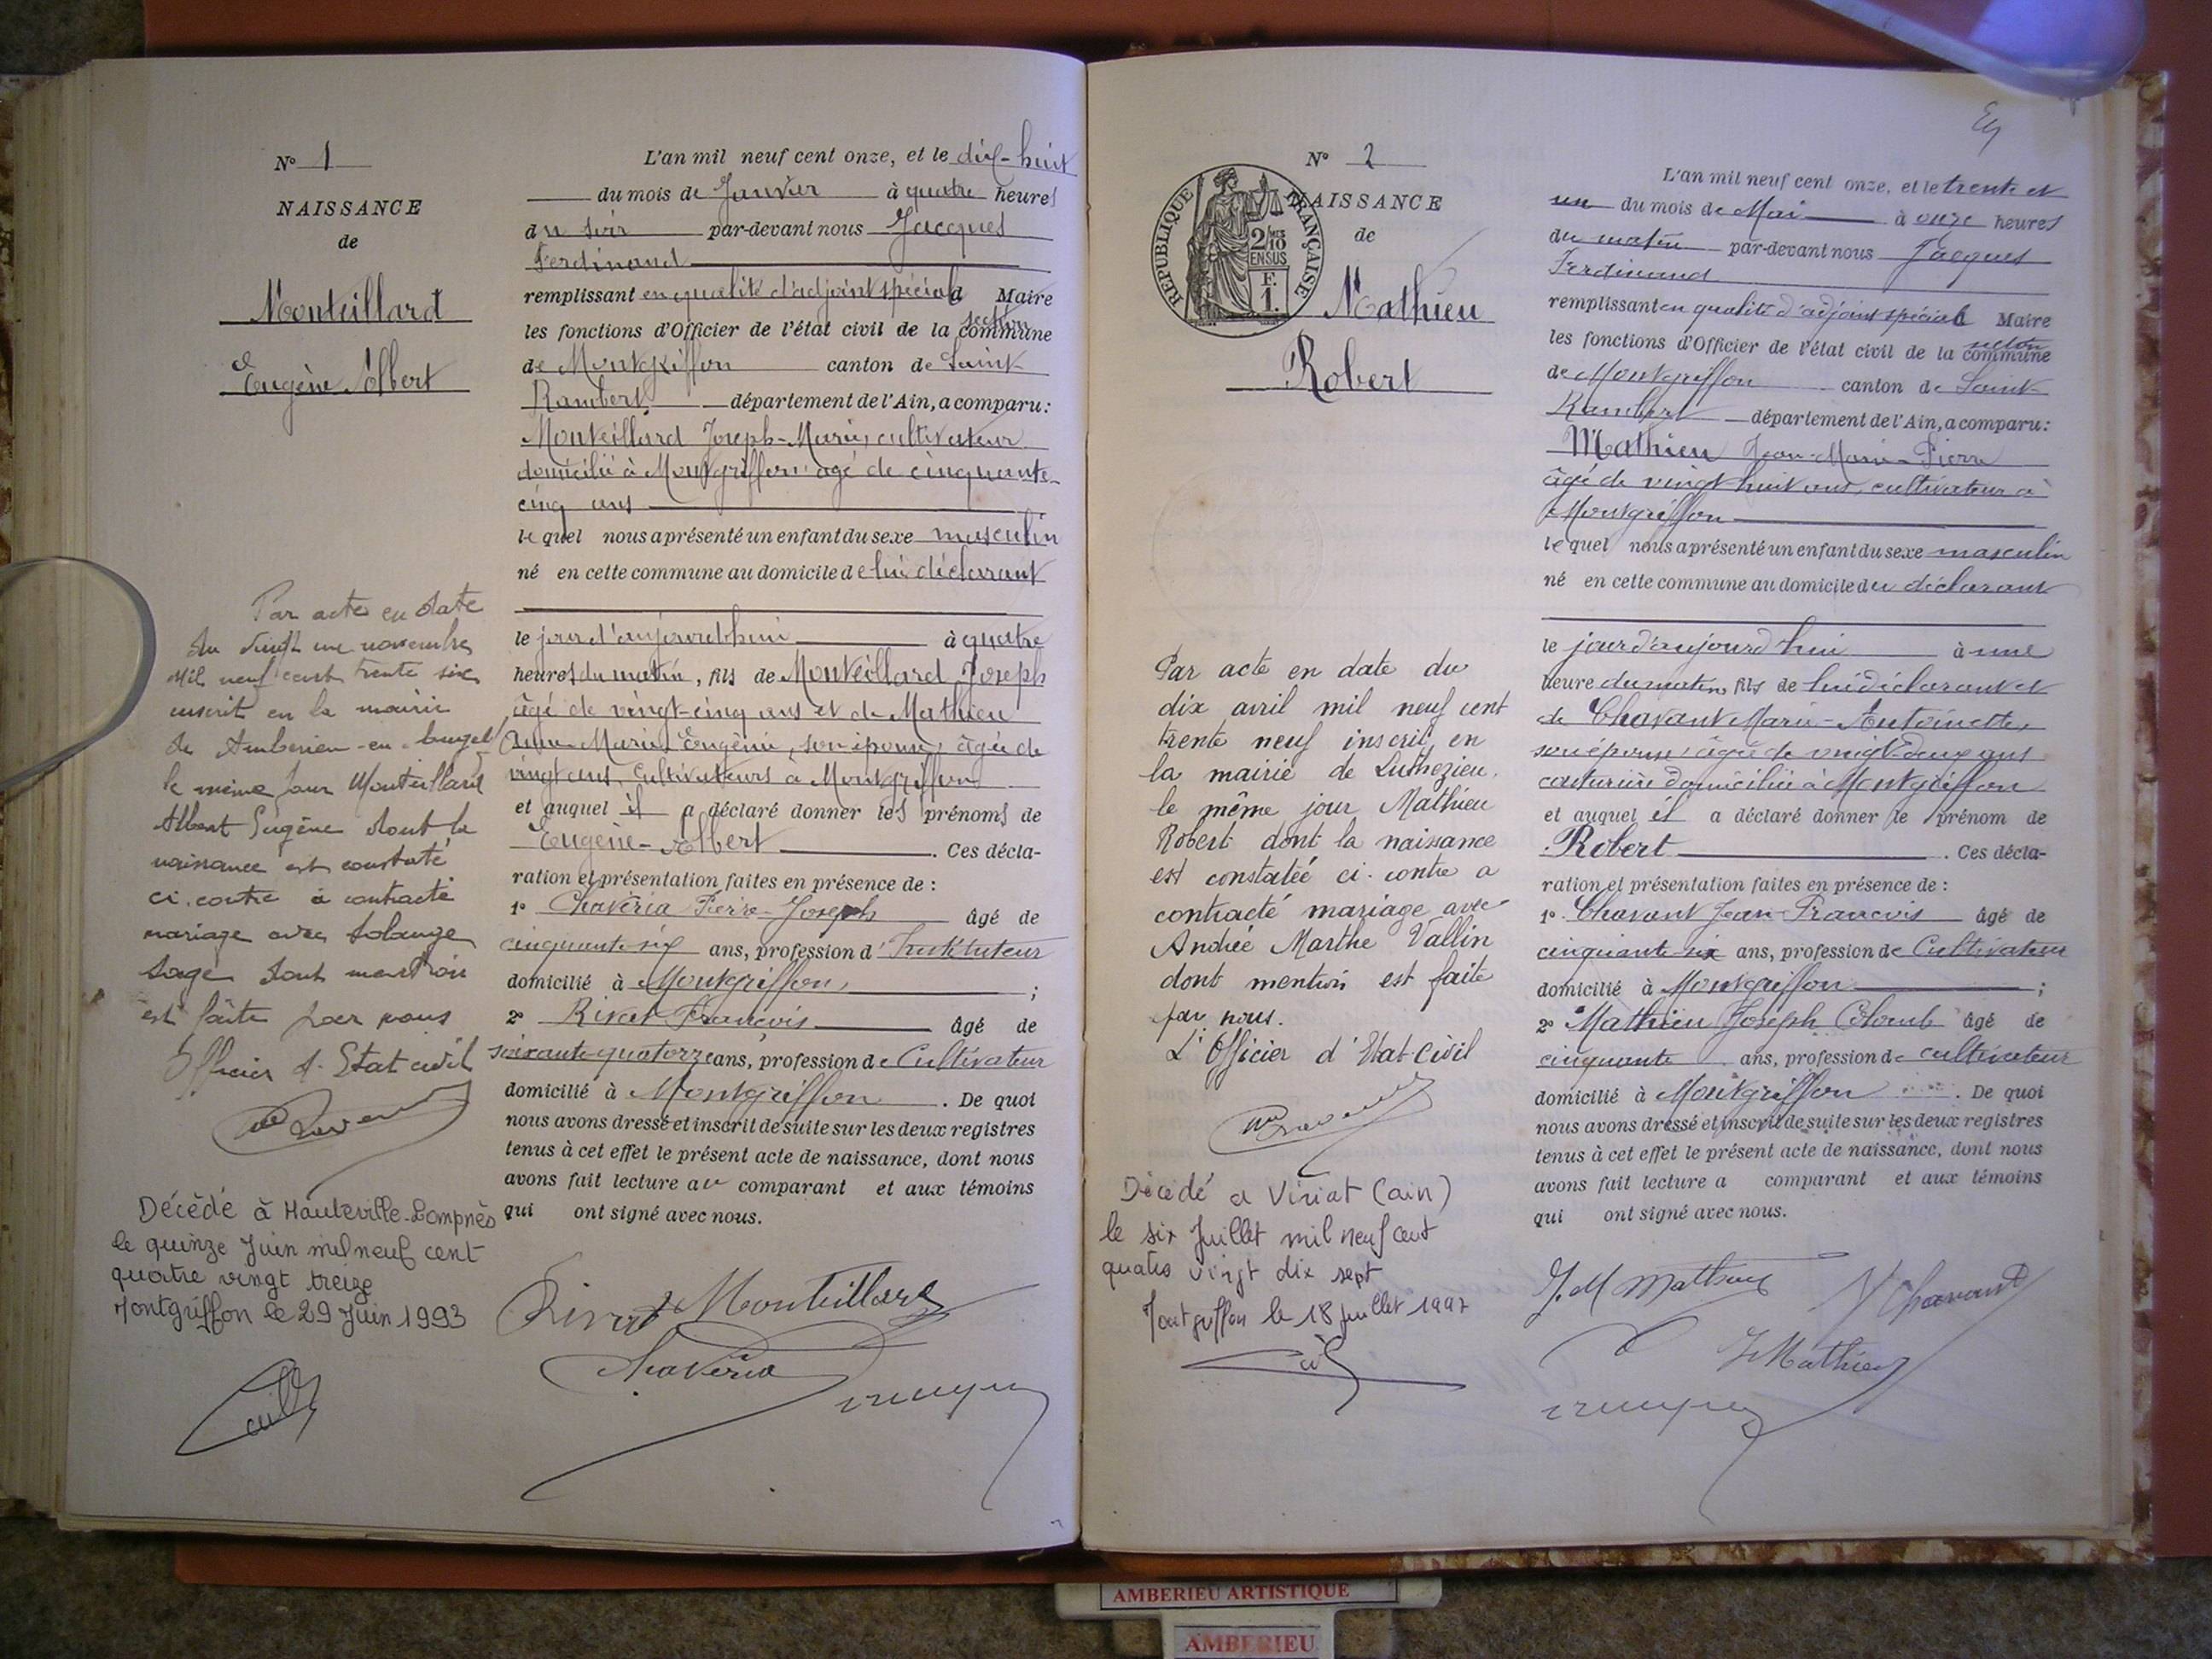 N° 1
NAISSANCE
de
Monteillard
Eugène Albert
Par acte en date
du vingt une novembre
mil neuf cent trente six
inscrit en la mairie
de Amberieu-en-bugey
le même jour Monteillard
Albert Eugène dont la
naissance est constaté
ci. contre à contracté
mariage avec Solange
Sage dont mention
est faite par nous
Officier d'Etat civil
Décédé à Hauteville-Lompnès
le quinze Juin mil neuf cent
quatre vingt treize
Montgriffon le 29 Juin 1993
L'an mil neuf cent onze, et le dix-huit
du mois de Janvier à quatre heures
du soir par-devant nous Jacques
Ferdinand
remplissant en qualité d'adjoint spécial Maire
section
les fonctions d'Officier de l'état civil de la commune
de Montgriffon canton de Saint-
Rambert département de l'Ain, a comparu:
Monteillard Joseph-Marie, cultivateur
domicilié à Montgriffon agé de cinquante-
cinq ans
lequel nous a présenté un enfant du sexe masculin
né en cette commune au domicile de lui déclarant
le jour d'aujourd'hui à quatre
heures du matin, fils de Monteillard Joseph
âgé de vingt-cinq ans et de Mathieu
Anne-Marie Eugénie, son épouse, âgée de
vingt ans, Cultivateurs à Montgriffon
et auquel il a déclaré donner les prénoms de
Eugène-Albert. Ces décla-
ration et présentation faites en présence de :
1° Chavéria Pierre-Joseph âgé de
cinquante-six ans, profession d'Instituteur
domicilié à Montgriffon, ;
2° Rivet François âgé de
soixante-quatorze ans, profession de Cultivateur
domicilié à Montgriffon. De quoi
nous avons dressé et inscrit de suite sur les deux registres
tenus à cet effet le présent acte de naissance, dont nous
avons fait lecture au comparant et aux témoins
qui ont signé avec nous.
Rivet Monteillard
Chavéria
N° 2
NAISSANCE
de
RÉPUBLIQUE FRANÇAISE
2/10
EN SUS
F.
1.
Mathieu
Robert
Par acte en date du
dix avril mil neuf cent
trente neuf inscrit, en
la mairie de Luthézieu,
le même jour Mathieu
Robert dont la naissance
est constatéé ci-contre a
contracté mariage avec
Andrée Marthe Vallin
dont mention est faite
par nous.
L'Officier d'Etat-Civil
Décédé a Viriat (ain)
le six Juillet mil neuf cent
quatre vingt dix sept
Montgriffon le 18 juillet 1997
L'an mil neuf cent onze, et le trente et
un du mois de Mai à onze heures
du matin par-devant nous Jacques
Ferdinand
remplissant en qualité d'adjoint spécial Maire
section
les fonctions d'Officier de l'état civil de la commune
de Montgriffon canton de Saint-
Rambert département de l'Ain, a comparu:
Mathieu Jean-Marie-Pierre
âgé de vingt huit ans, cultivateur à
Montgriffon
lequel nous a présenté un enfant du sexe masculin
né en cette commune au domicile du déclarant
le jour d'aujourd'hui à une
heure du matin, fils de lui déclarant et
de Chavant Marie-Antoinette,
son épouse, âgée de vingt-deux ans
couturière domiciliée à Montgriffon
et auquel il a déclaré donner le prénom de
Robert. Ces décla-
ration et présentation faites en présence de :
1° Chavant Jean-François âgé de
cinquante-six ans, profession de Cultivateur
domicilié à Montgriffon ;
2° Mathieu Joseph Colomb âgé de
cinquante ans, profession de cultivateur
domicilié à Montgriffon. De quoi
nous avons dressé et inscrit de suite sur les deux registres
tenus à cet effet le présent acte de naissance, dont nous
avons fait lecture a comparant et aux témoins
qui ont signé avec nous.
J. M Mathieu Chavant
J Mathieu
AMBERIEU ARTISTIQUE
AMBERIEU